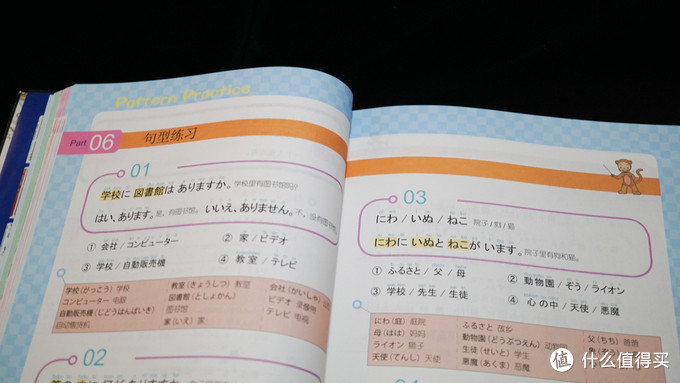 Pattern Practice
Part 06 句型练习
01
学校に 図書館は ありますか。学校里有图书馆吗?
はい、あります。是，有图书馆。 いいえ、ありません。不，没有图书馆
① 会社 / コンピューター ② 家 / ビデオ
③ 学校 / 自動販売機 ④ 教室 / テレビ
学校（がっこう）学校 教室（きょうしつ）教室 会社（かいしゃ）
コンピューター 电脑 図書館（としょかん） ビデオ 录像带
自動販売機（じどうはんばいき） 图书馆 テレビ 电视
自动售货机 家（いえ）家
02
03
にわ / いぬ / ねこ 院子 / 狗 / 猫
にわに いぬと ねこが います。院子里有狗和猫。
① ふるさと / 父 / 母 ② 動物園 / ぞう / ライオン
③ 学校 / 先生 / 生徒 ④ 心の中 / 天使 / 悪魔
にわ（庭）庭院 ふるさと 故乡 父（ちち）爸爸
母（はは）妈妈 動物園（どうぶつえん）动物园
ライオン 狮子 生徒（せいと）学生
天使（てんし）天使 悪魔（あくま）恶魔
值 什么值得买